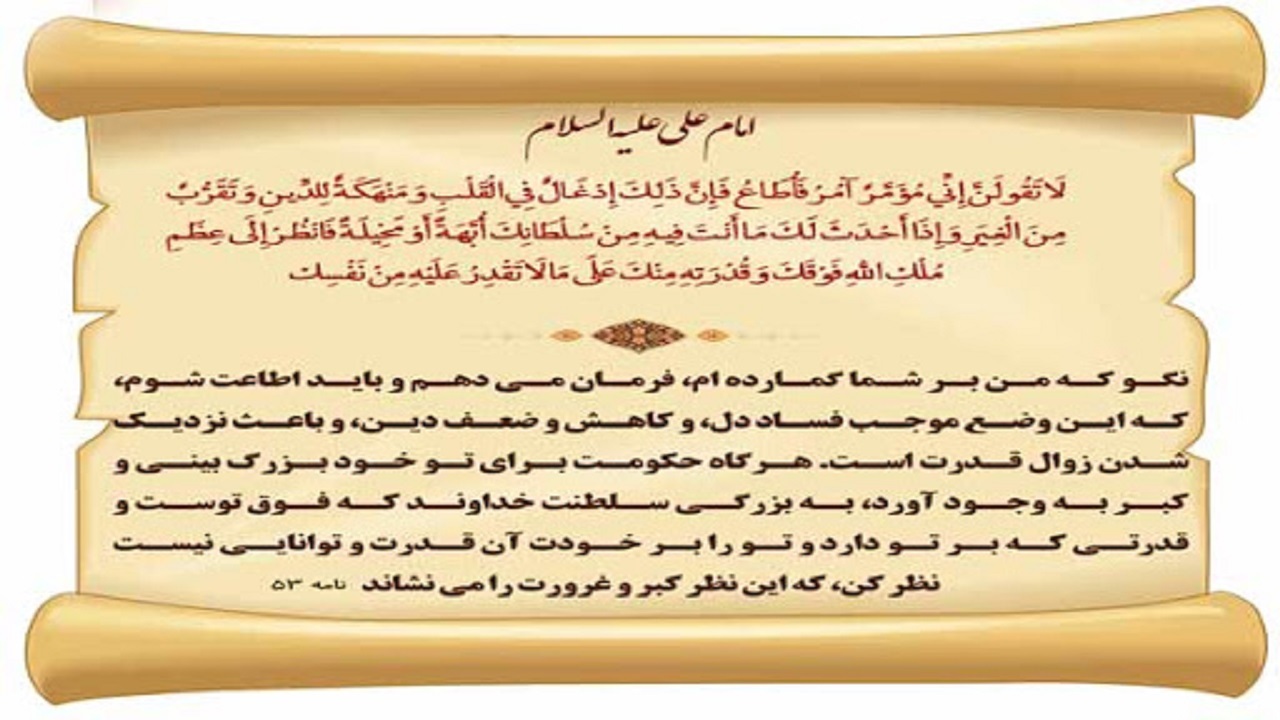 امام علی علیه السلام
لَا تَقُولَنَّ إِنِّي مُؤَمَّرٌ آمُرُ فَأُطَاعُ فَإِنَّ ذَلِكَ إِدْغَالٌ فِي الْقَلْبِ وَ مَنْهَكَةٌ لِلدِّينِ وَ تَقَرُّبٌ
مِنَ الْغِيَرِ وَ إِذَا أَحْدَثَ لَكَ مَا أَنْتَ فِيهِ مِنْ سُلْطَانِكَ أُبَّهَةً أَوْ مَخِيلَةً فَانْظُرْ إِلَى عِظَمِ
مُلْكِ اللهِ فَوْقَكَ وَ قُدْرَتِهِ مِنْكَ عَلَى مَا لَا تَقْدِرُ عَلَيْهِ مِنْ نَفْسِكَ
نگو که من بر شما گمارده ام، فرمان می دهم و باید اطاعت شوم،
که این وضع موجب فساد دل، و کاهش و ضعف دین، و باعث نزدیک
شدن زوال قدرت است. هرگاه حکومت برای تو خود بزرگ بینی و
کبر به وجود آورد، به بزرگی سلطنت خداوند که فوق توست و
قدرتی که بر تو دارد و تو را بر خودت آن قدرت و توانایی نیست
نظر کن، که این نظر کبر و غرورت را می نشاند نامه ۵۳